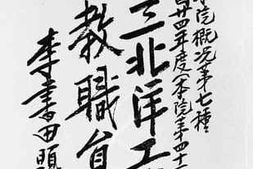 院概況第七種
廿四年度(本院第四十
三北洋工
教職員
李書田題